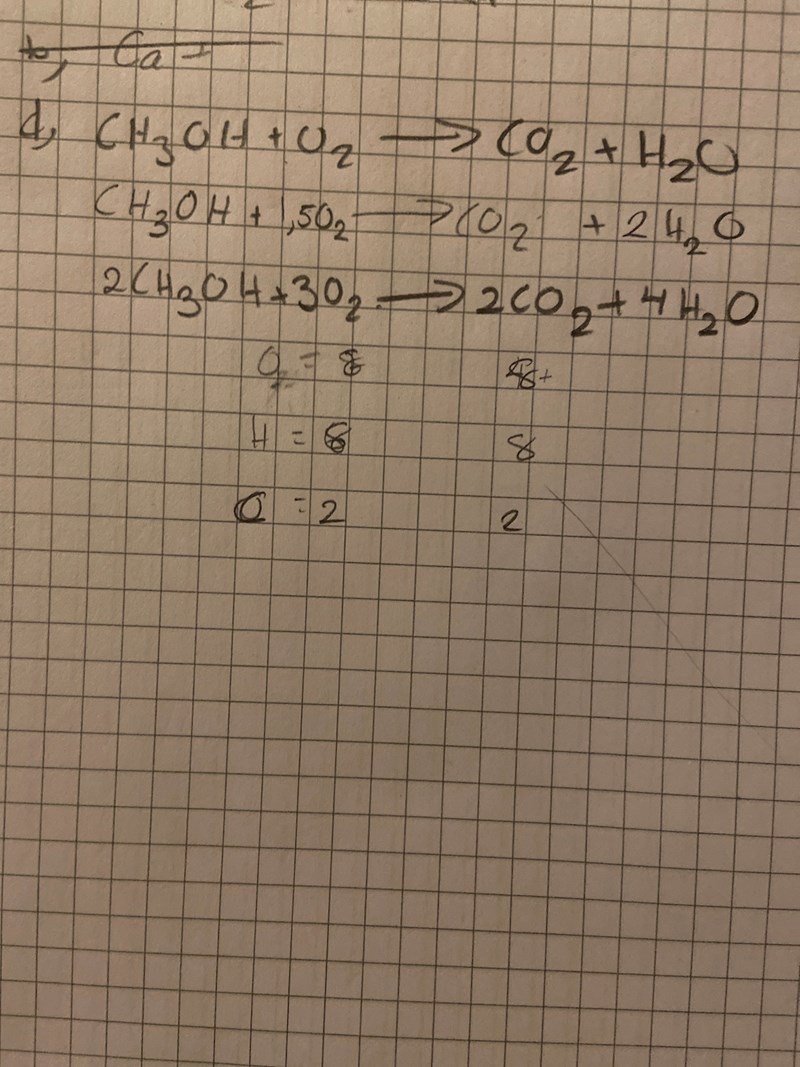 b, Ca =
d, CH₃OH + O₂ → CO₂ + H₂O
CH₃OH + 1,5O₂ → CO₂ + 2H₂O
2CH₃OH + 3O₂ → 2CO₂ + 4H₂O
O = 8 8
H = 8 8
C = 2 2